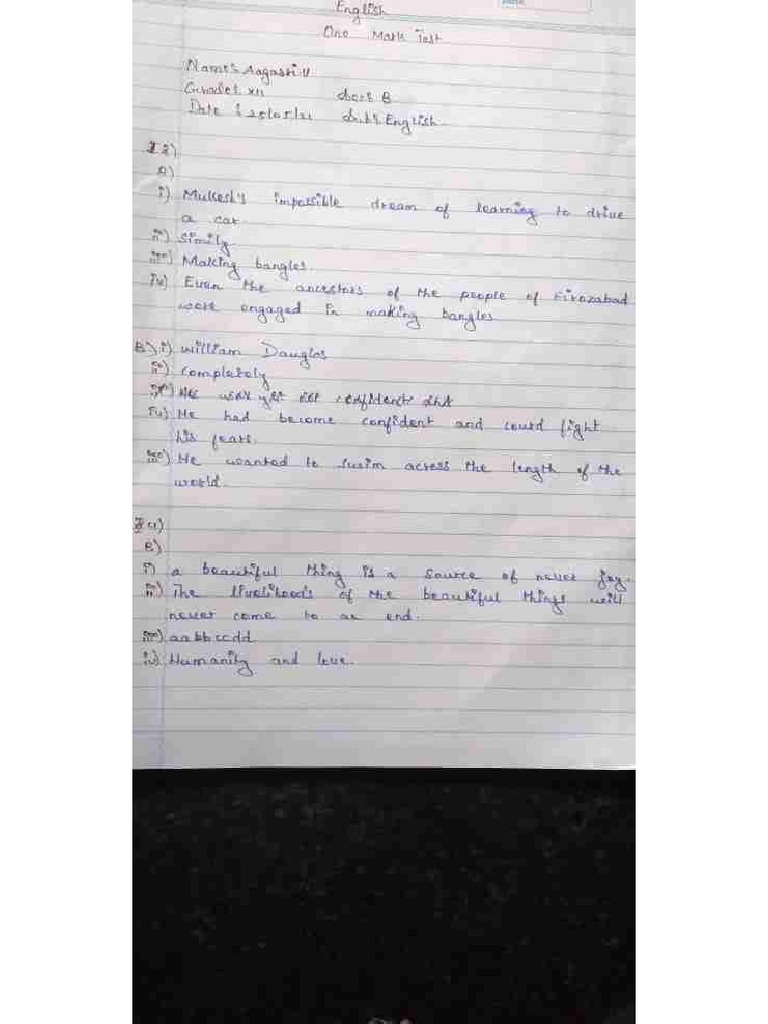 English
One Mark Test
Name: Aagasri V
Grade: XII Sec: B
Date : 25/05/21 Sub: English
I 2)
A)
i) Mukesh's impossible dream of learning to drive
a car.
ii) Simily
iii) Making bangles.
iv) Even the ancestors of the people of Firozabad
were engaged in making bangles
B) i) William Dauglas
ii) completely
iii) He was yet not confident
iv) He had become confident and could fight
his fears.
iii) He wanted to swim across the length of the
world.
4)
B)
i) a beautiful thing is a source of never joy.
ii) The livelihoods of the beautiful things will
never come to an end.
iii) aabbccdd
iv) Humanity and love.